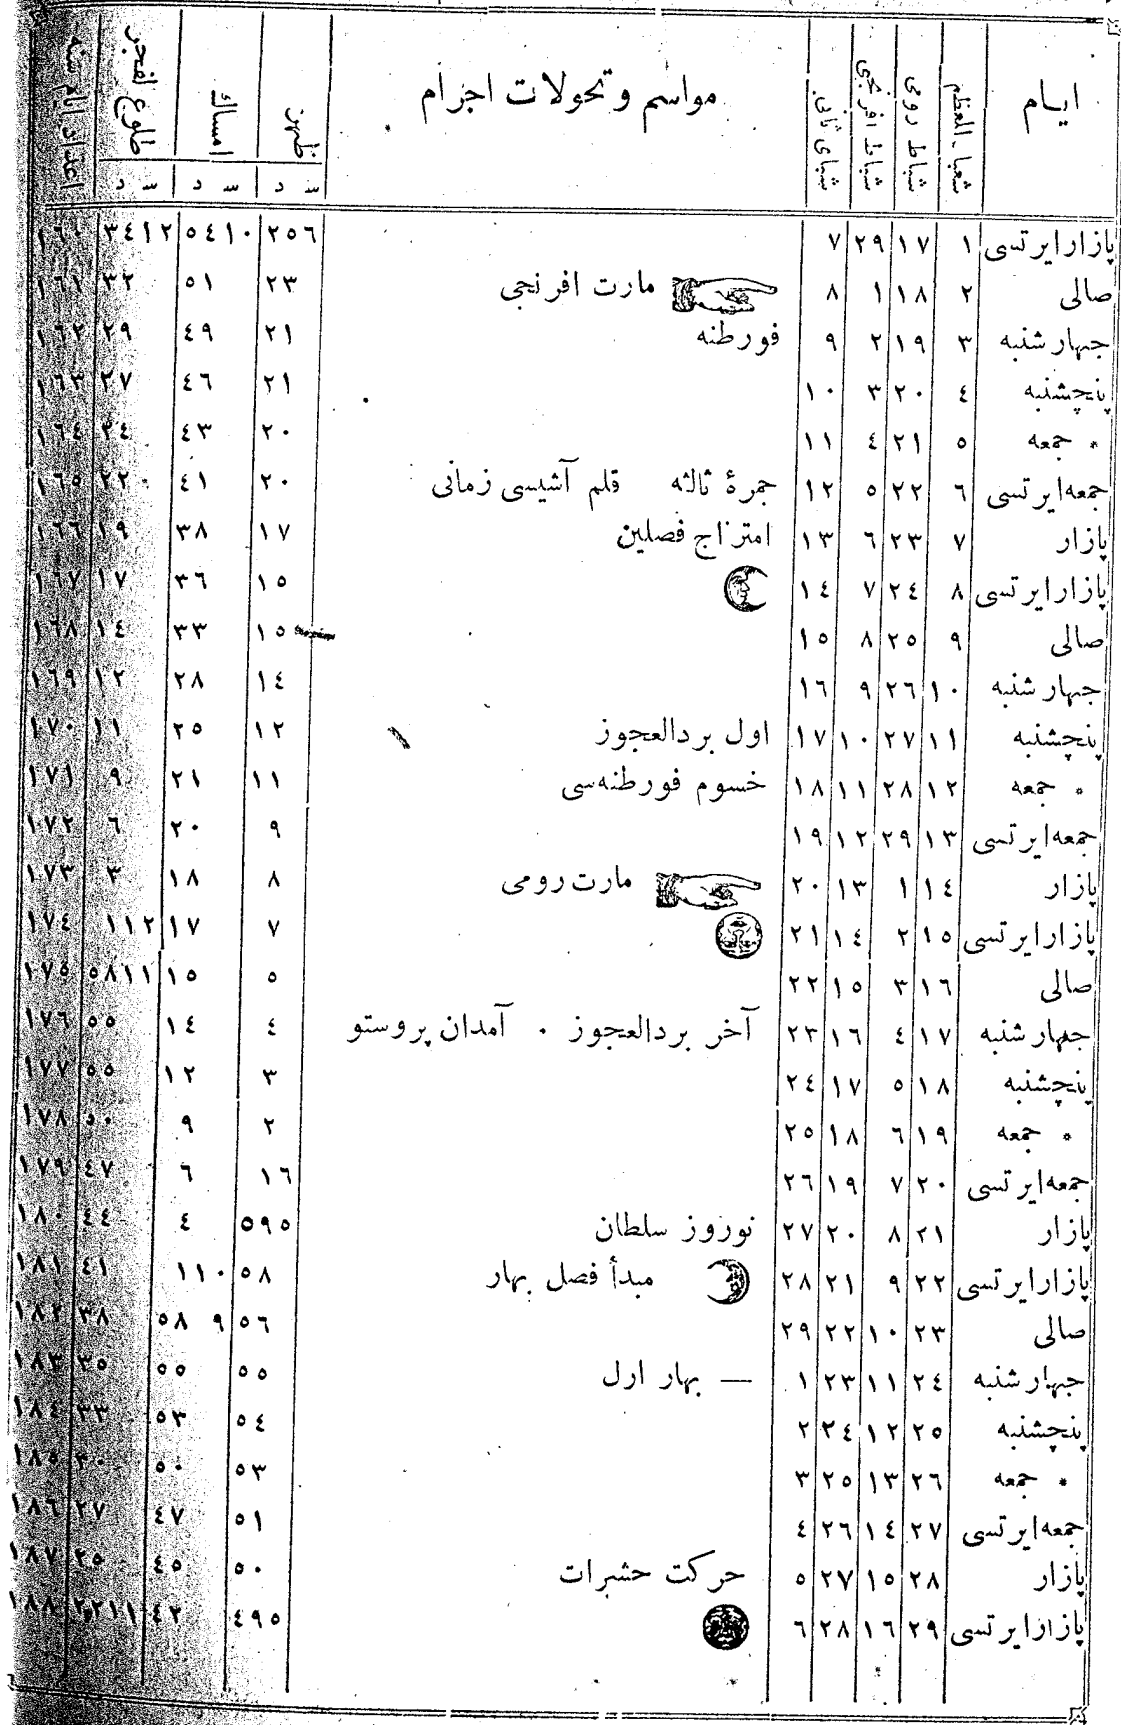 ايام شعبا ـ المعظم شباط رومى شباط افرنجى شباى ثانى مواسم وتحولات اجرام ظهر امساك طلوع الفجر اعتداد ايام سنه
س د س د س د
پازارايرتسى ١ ١٧ ٢٩ ٧ ٦ ٢٥ ١٠ ٥٤ ١٢ ٣٤ ١٦٠
صالى ٢ ١٨ ١ ٨ مارت افرنجى ٢٣ ٥١ ٣٢ ١٦١
جهارشنبه ٣ ١٩ ٢ ٩ فورطنه ٢١ ٤٩ ٢٩ ١٦٢
پنچشنبه ٤ ٢٠ ٣ ١٠ ٢١ ٤٦ ٢٧ ١٦٣
• جمعه ٥ ٢١ ٤ ١١ ٢٠ ٤٣ ٢٤ ١٦٤
جمعه‌ايرتسى ٦ ٢٢ ٥ ١٢ جمرهٔ ثالثه قلم آشيسى زمانى ٢٠ ٤١ ٢٢ ١٦٥
پازار ٧ ٢٣ ٦ ١٣ امتزاج فصلين ١٧ ٣٨ ١٩ ١٦٦
پازارايرتسى ٨ ٢٤ ٧ ١٤ ١٥ ٣٦ ١٧ ١٦٧
صالى ٩ ٢٥ ٨ ١٥ ١٥ ٣٣ ١٤ ١٦٨
جهارشنبه ١٠ ٢٦ ٩ ١٦ ١٤ ٢٨ ١٢ ١٦٩
پنچشنبه ١١ ٢٧ ١٠ ١٧ اول بردالعجوز ١٢ ٢٥ ١١ ١٧٠
• جمعه ١٢ ٢٨ ١١ ١٨ خسوم فورطنه‌سى ١١ ٢١ ٩ ١٧١
جمعه‌ايرتسى ١٣ ٢٩ ١٢ ١٩ ٩ ٢٠ ٦ ١٧٢
پازار ١٤ ١ ١٣ ٢٠ مارت رومى ٨ ١٨ ٣ ١٧٣
پازارايرتسى ١٥ ٢ ١٤ ٢١ ٧ ١٧ ١٢ ١ ١٧٤
صالى ١٦ ٣ ١٥ ٢٢ ٥ ١٥ ١١ ٥٨ ١٧٥
جهارشنبه ١٧ ٤ ١٦ ٢٣ آخر بردالعجوز • آمدان پروستو ٤ ١٤ ٥٥ ١٧٦
پنچشنبه ١٨ ٥ ١٧ ٢٤ ٣ ١٢ ٥٥ ١٧٧
• جمعه ١٩ ٦ ١٨ ٢٥ ٢ ٩ ٥٠ ١٧٨
جمعه‌ايرتسى ٢٠ ٧ ١٩ ٢٦ ٦ ١ ٦ ٤٧ ١٧٩
پازار ٢١ ٨ ٢٠ ٢٧ نوروز سلطان ٥ ٥٩ ٤ ٤٤ ١٨٠
پازارايرتسى ٢٢ ٩ ٢١ ٢٨ مبدأ فصل بهار ٥٨ ١٠ ١ ٤١ ١٨١
صالى ٢٣ ١٠ ٢٢ ٢٩ ٥٦ ٩ ٥٨ ٣٨ ١٨٢
جهارشنبه ٢٤ ١١ ٢٣ ١ — بهار ارل ٥٥ ٥٥ ٣٥ ١٨٣
پنچشنبه ٢٥ ١٢ ٢٤ ٢ ٥٤ ٥٣ ٣٣ ١٨٤
• جمعه ٢٦ ١٣ ٢٥ ٣ ٥٣ ٥٠ ٣٠ ١٨٥
جمعه‌ايرتسى ٢٧ ١٤ ٢٦ ٤ ٥١ ٤٧ ٢٧ ١٨٦
پازار ٢٨ ١٥ ٢٧ ٥ حركت حشرات ٥٠ ٤٥ ٢٥ ١٨٧
پازارايرتسى ٢٩ ١٦ ٢٨ ٦ ٥ ٤٩ ٤٢ ١١ ٢٢ ١٨٨